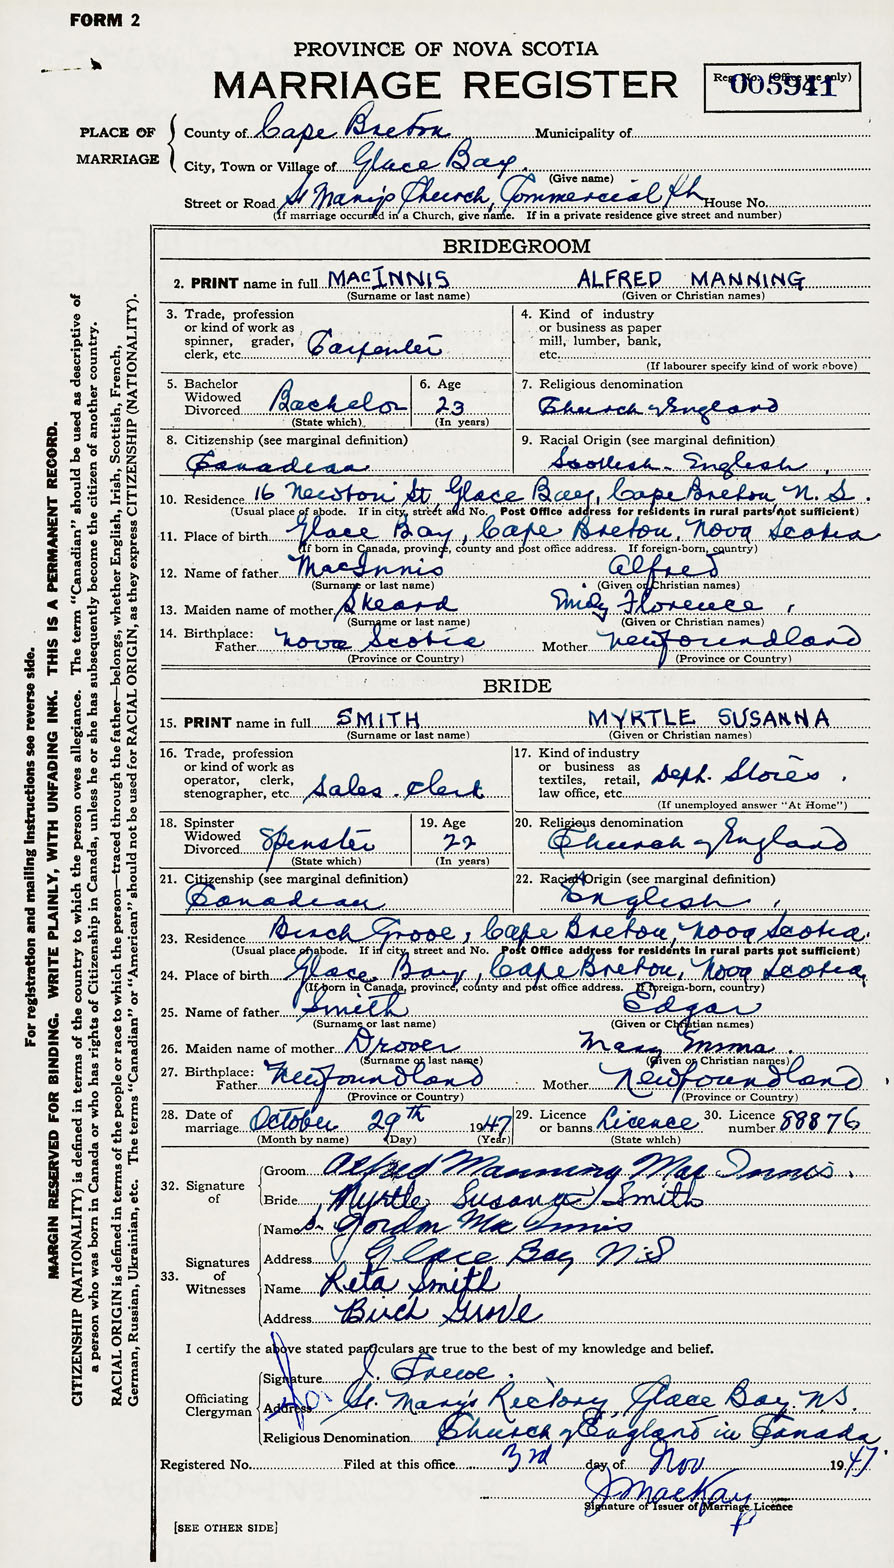 FORM 2
PROVINCE OF NOVA SCOTIA
MARRIAGE REGISTER
Reg. No. (Office use only)
005941
PLACE OF MARRIAGE
County of Cape Breton Municipality of
City, Town or Village of Glace Bay.
(Give name)
Street or Road St Mary's Church, Commercial House No.
(If marriage occurred in a Church, give name. If in a private residence give street and number)
BRIDEGROOM
2. PRINT name in full MACINNIS ALFRED MANNING
(Surname or last name) (Given or Christian names)
3. Trade, profession or kind of work as spinner, grader, clerk, etc. Carpenter
4. Kind of industry or business as paper mill, lumber, bank, etc.
(If labourer specify kind of work above)
5. Bachelor Widowed Divorced Bachelor
(State which)
6. Age 23
(In years)
7. Religious denomination
Church of England
8. Citizenship (see marginal definition)
Canadian
9. Racial Origin (see marginal definition)
Scottish-English
10. Residence 16 Newton St, Glace Bay, Cape Breton, N.S.
(Usual place of abode. If in city, street and No. Post Office address for residents in rural parts not sufficient)
11. Place of birth Glace Bay, Cape Breton, Nova Scotia
(If born in Canada, province, county and post office address. If foreign-born, country)
12. Name of father MacInnis Alfred
(Surname or last name) (Given or Christian names)
13. Maiden name of mother Skeard Florence
(Surname or last name) (Given or Christian names)
14. Birthplace:
Father Nova Scotia Mother Newfoundland
(Province or Country) (Province or Country)
BRIDE
15. PRINT name in full SMITH MYRTLE SUSANNA
(Surname or last name) (Given or Christian names)
16. Trade, profession or kind of work as operator, clerk, stenographer, etc. Sales-clerk
17. Kind of industry or business as textiles, retail, law office, etc. Dept. Stores.
(If unemployed answer "At Home")
18. Spinster Widowed Divorced Spinster
(State which)
19. Age 22
(In years)
20. Religious denomination
Church of England
21. Citizenship (see marginal definition)
Canadian
22. Racial Origin (see marginal definition)
English
23. Residence Birch Grove, Cape Breton, Nova Scotia.
(Usual place of abode. If in city, street and No. Post Office address for residents in rural parts not sufficient)
24. Place of birth Glace Bay, Cape Breton, Nova Scotia
(If born in Canada, province, county and post office address. If foreign-born, country)
25. Name of father Smith Edgar
(Surname or last name) (Given or Christian names)
26. Maiden name of mother Drover Mary Emma.
(Surname or last name) (Given or Christian names)
27. Birthplace:
Father Newfoundland Mother Newfoundland
(Province or Country) (Province or Country)
28. Date of marriage October 29th 1947
(Month by name) (Day) (Year)
29. Licence or banns Licence
(State which)
30. Licence number 88876
32. Signature of
Groom Alfred Manning MacInnis.
Bride Myrtle Susanna Smith
33. Signatures of Witnesses
Name Gordon MacInnis
Address Glace Bay N.S
Name Reta Smith
Address Birch Grove
I certify the above stated particulars are true to the best of my knowledge and belief.
Officiating Clergyman
Signature J. Trewe.
Address St. Mary's Rectory, Glace Bay. N.S.
Religious Denomination Church of England in Canada
Registered No. Filed at this office 3rd day of Nov 1947.
J MacKay
Signature of Issuer of Marriage Licence
[SEE OTHER SIDE]
For registration and mailing instructions see reverse side.
MARGIN RESERVED FOR BINDING. WRITE PLAINLY, WITH UNFADING INK. THIS IS A PERMANENT RECORD.
CITIZENSHIP (NATIONALITY) is defined in terms of the country to which the person owes allegiance. The term "Canadian" should be used as descriptive of
a person who was born in Canada or who has rights of Citizenship in Canada, unless he or she has subsequently become the citizen of another country.
RACIAL ORIGIN is defined in terms of the people or race to which the person—traced through the father—belongs, whether English, Irish, Scottish, French,
German, Russian, Ukrainian, etc. The terms "Canadian" or "American" should not be used for RACIAL ORIGIN, as they express CITIZENSHIP (NATIONALITY).